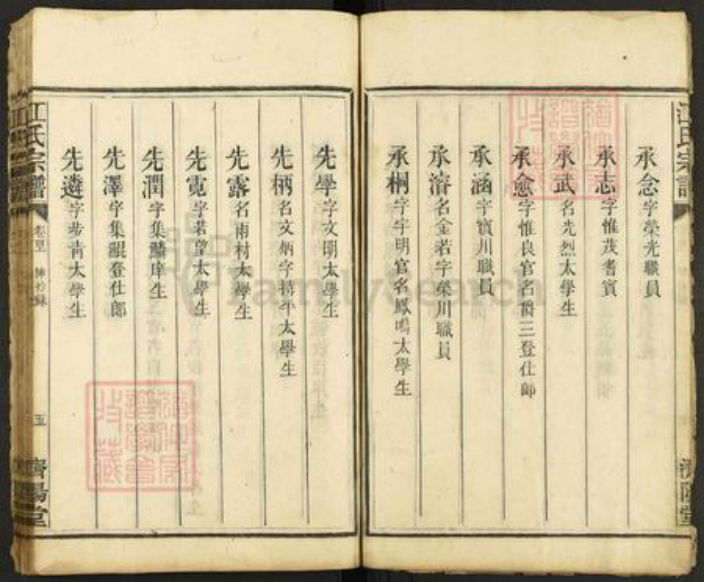 江氏宗譜
承念字榮光職員
承志字惟茂耆賓
承武名光烈太學生
承愈字惟良官名爵三登仕郎
承涵字寶川職員
承濬名金若字榮川職員
承桐字宇明官名鳳鳴太學生
先學字文明太學生
先柄名文炳字持平太學生
先露名雨村太學生
先霓字若曾太學生
先潤字集麟庠生
先澤字集鯤登仕郎
先遴字步青太學生
江氏宗譜
五
濟陽堂
濟陽堂
FamilySearch